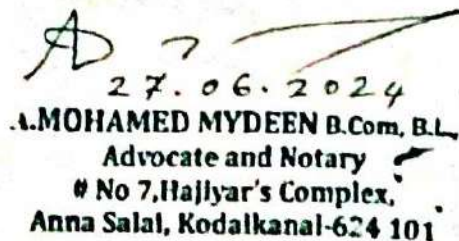 27.06.2024
A.MOHAMED MYDEEN B.Com, B.L.,
Advocate and Notary
# No 7,Hajiyar's Complex,
Anna Salai, Kodaikanal-624 101